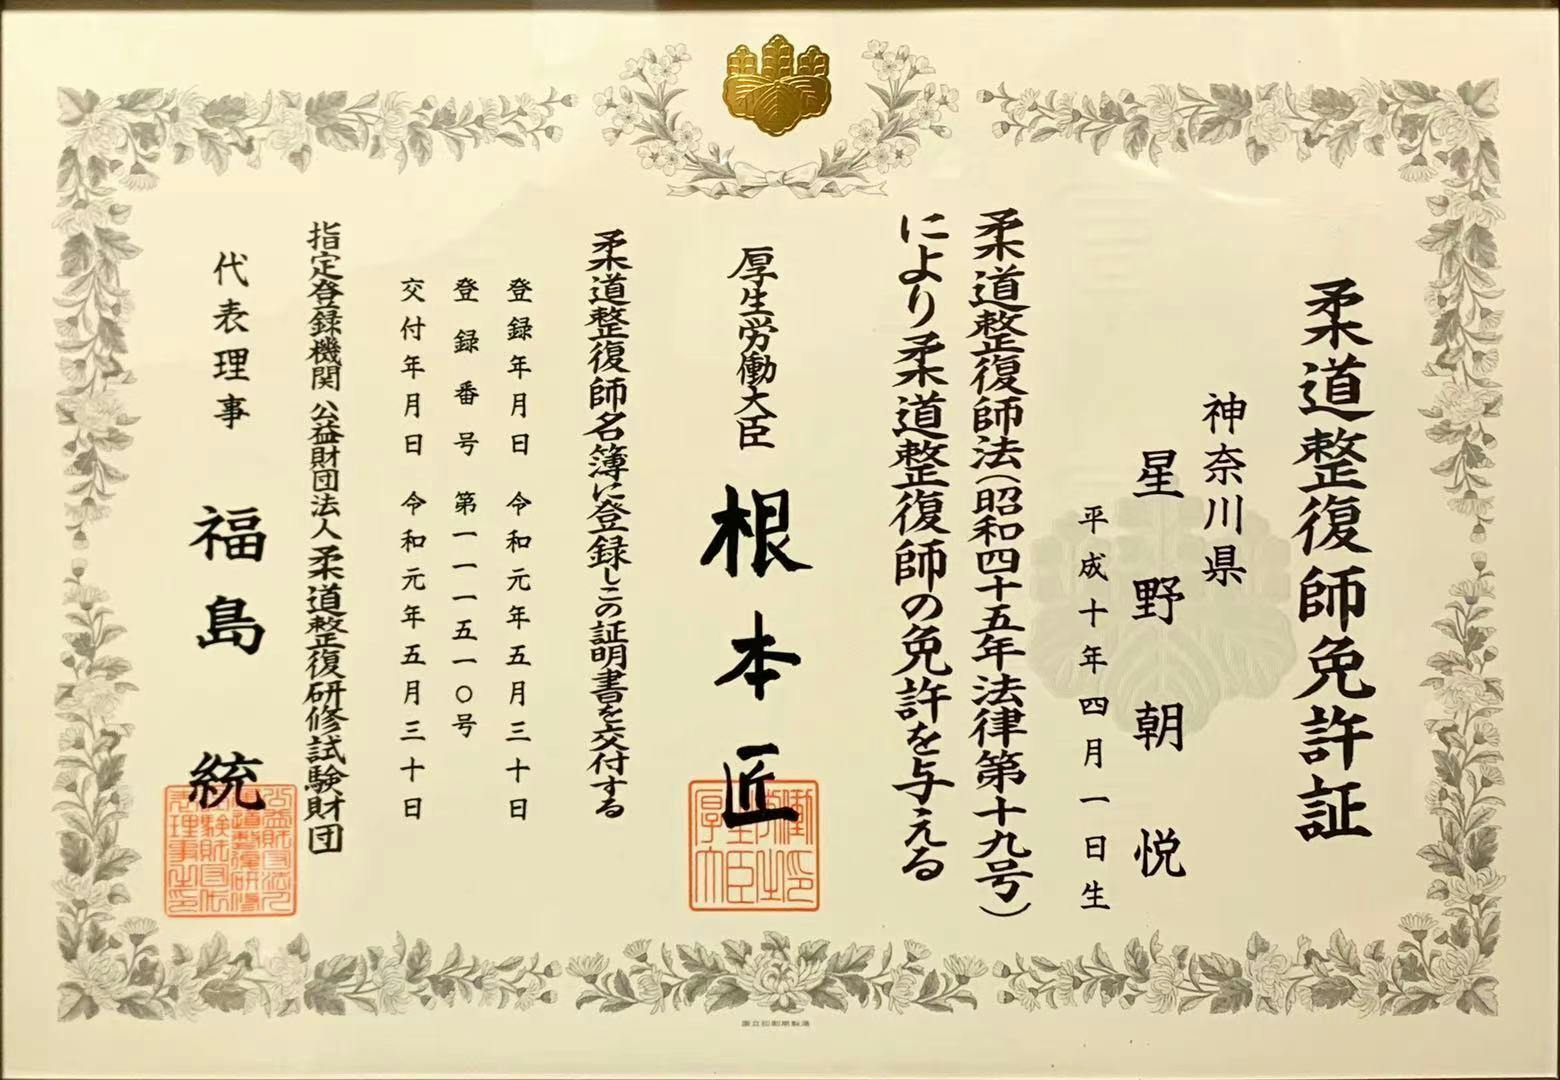 柔道整復師免許証
神奈川県
星野朝悦
平成十年四月一日生
柔道整復師法(昭和四十五年法律第十九号)
により柔道整復師の免許を与える
厚生労働大臣 根本匠
柔道整復師名簿に登録しこの証明書を交付する
登録年月日 令和元年五月三十日
登録番号 第一一一五一〇号
交付年月日 令和元年五月三十日
指定登録機関 公益財団法人 柔道整復研修試験財団
代表理事 福島統